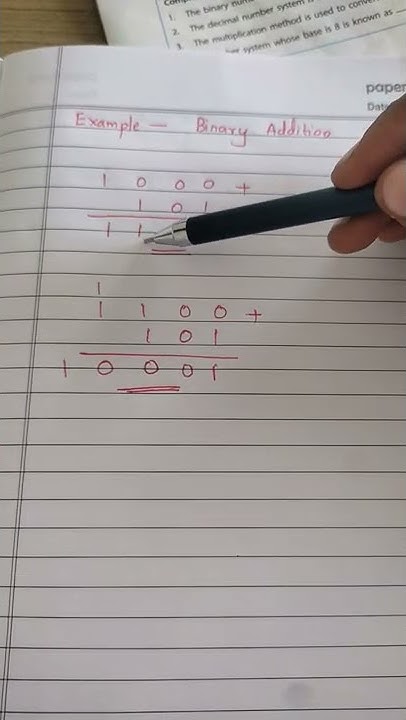 1. The binary num
2. The decimal number system i
3. The multiplication method is used to conve
er system whose base is 8 is known as
paper
Date
Example — Binary Addition
1 0 0 0 +
1 0 1
1 1
1
1 1 0 0 +
1 0 1
1 0 0 0 1